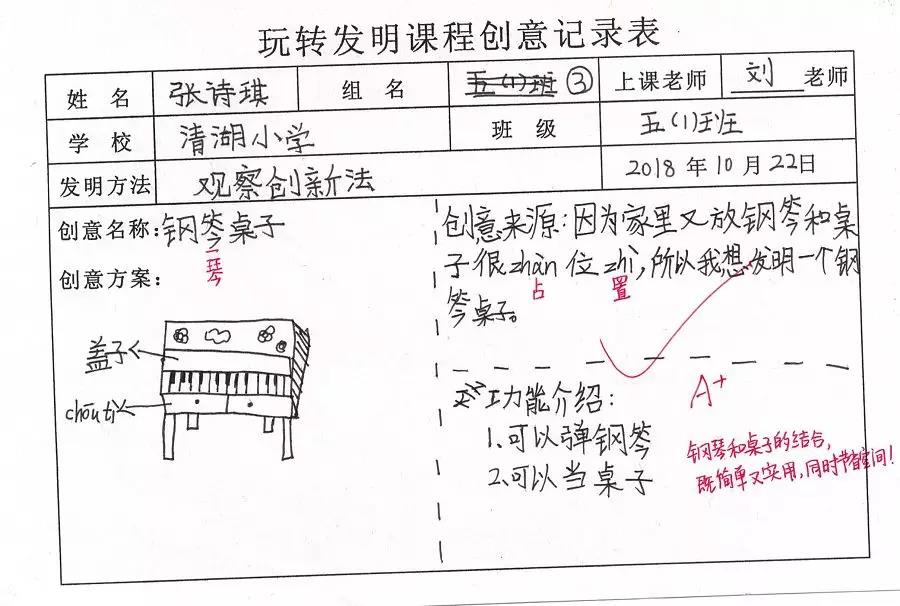 玩转发明课程创意记录表
姓 名 张诗琪 组 名 五(1)班 ③ 上课老师 刘 老师
学 校 清湖小学 班 级 五(1)班
发明方法 观察创新法 2018 年 10 月 22日
创意名称:钢笒桌子
琴
创意方案:
盖子
chōuti
创意来源:因为家里又放钢笒和桌
子很zhàn位zhì,所以我想发明一个钢
占 置
笒桌子。
功能介绍:
1.可以弹钢笒
2.可以当桌子
A+
钢琴和桌子的结合,
既简单又实用,同时节省空间!